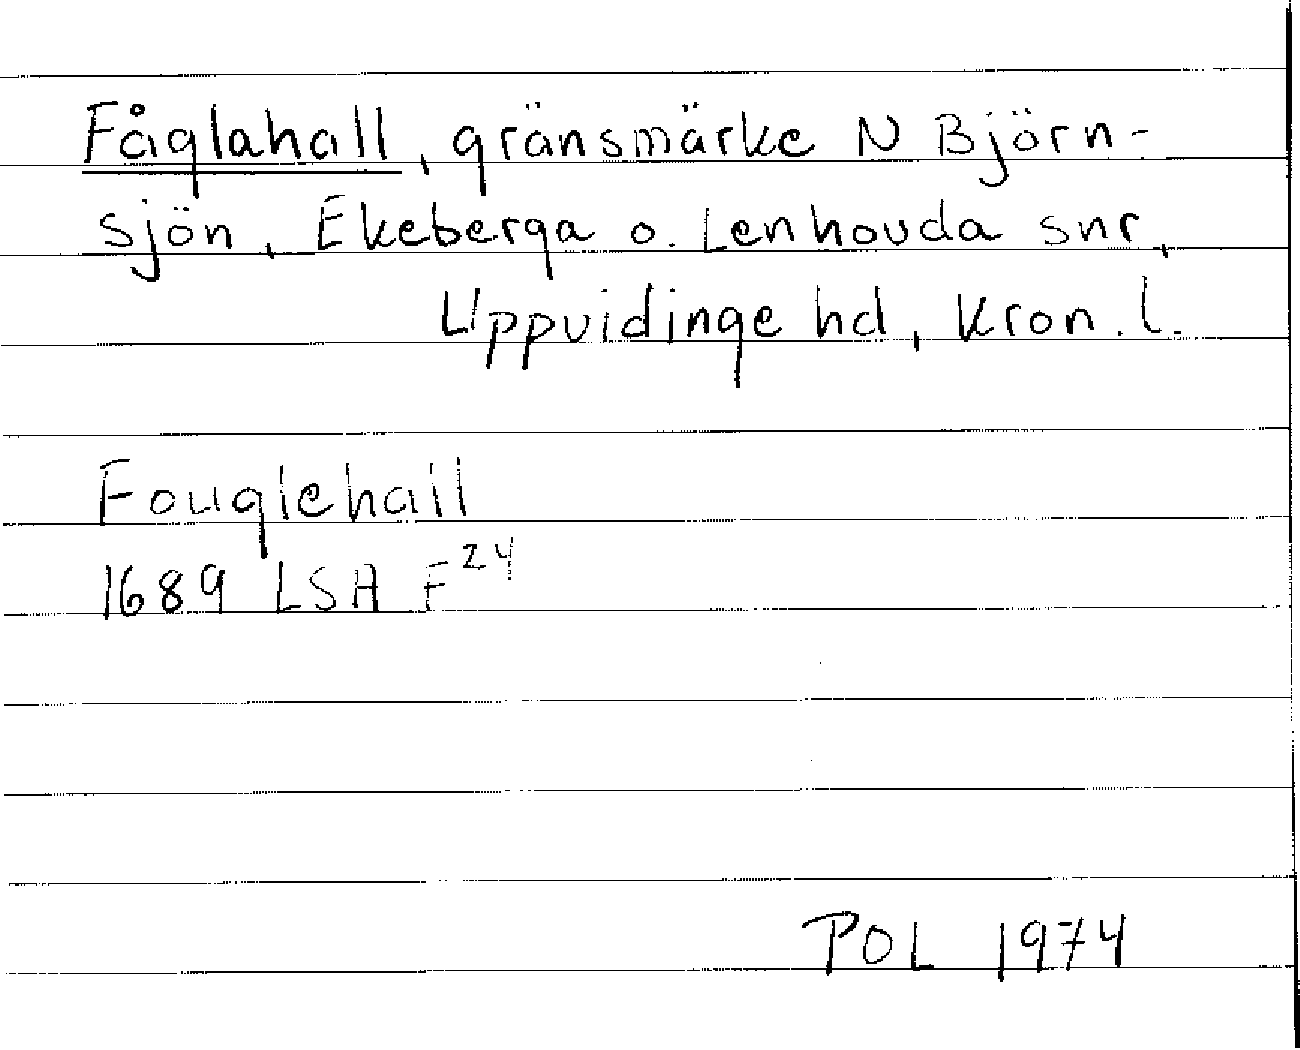 Fåglahall, gränsmärke N Björn-
sjön, Ekeberga o. Lenhovda snr,
Uppvidinge hd, Kron. l.
Fouglehall
1689 LSA F²⁴
POL 1974